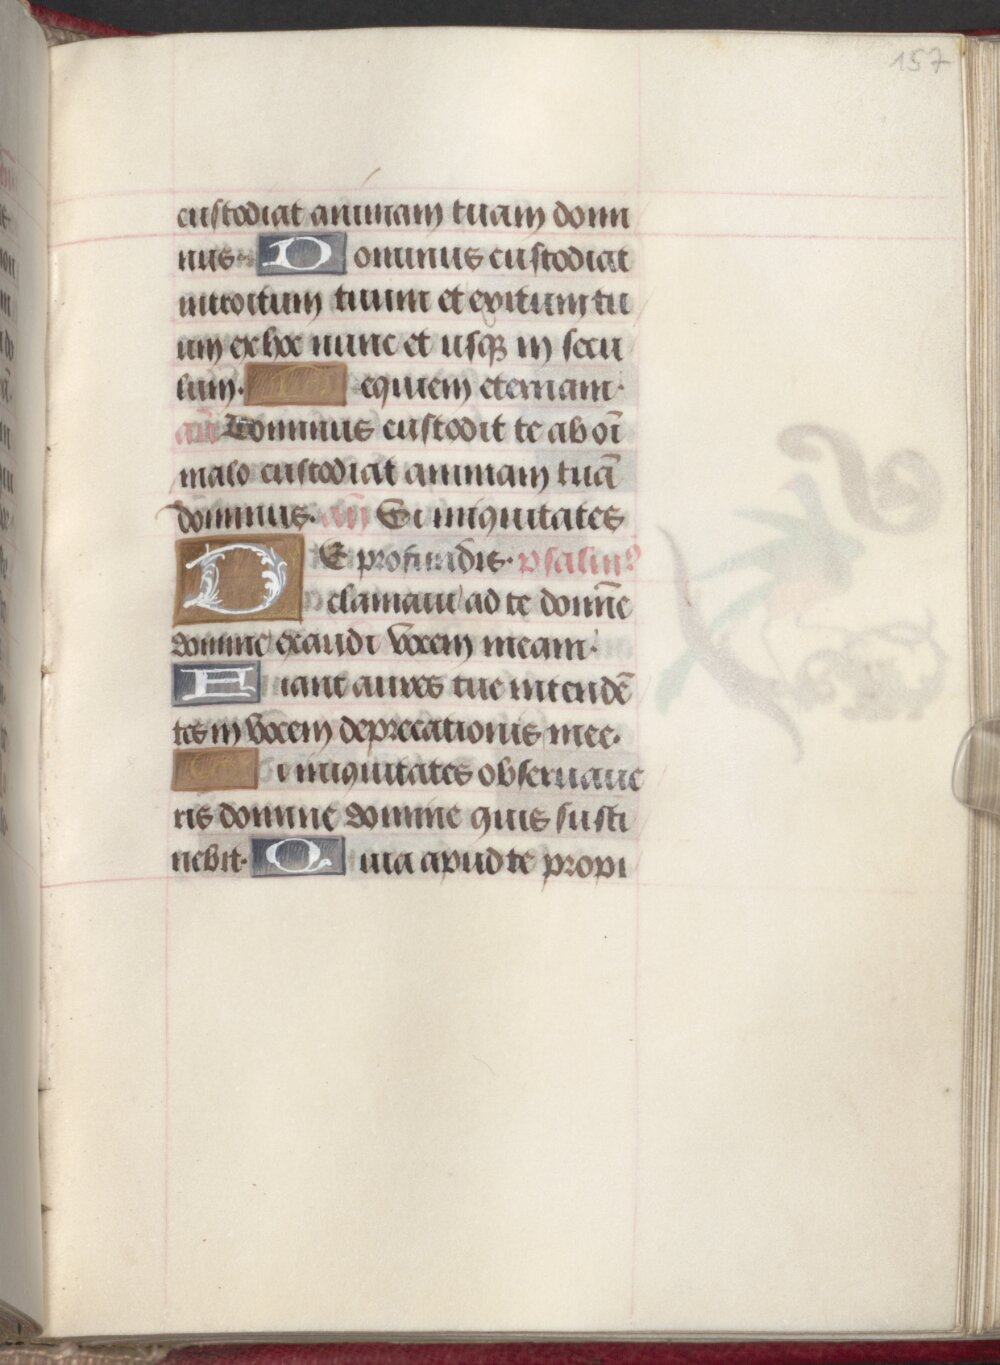 157
custodiat animam tuam domi
nus. Dominus custodiat
introitum tuum et exitum tu
um ex hoc nunc et usqꝫ in secu
lum. Requiem eternam.
añ Dominus custodit te ab oī
malo custodiat animam tuā
dominus. añ Si iniquitates
DE profundis. psalmꝰ
clamaui ad te domīe
domine exaudi vocem meam.
Fiant aures tue intendē
tes in vocem deprecationis mee.
Si iniquitates obseruaue
ris domine domine quis susti
nebit. Quia apud te propi